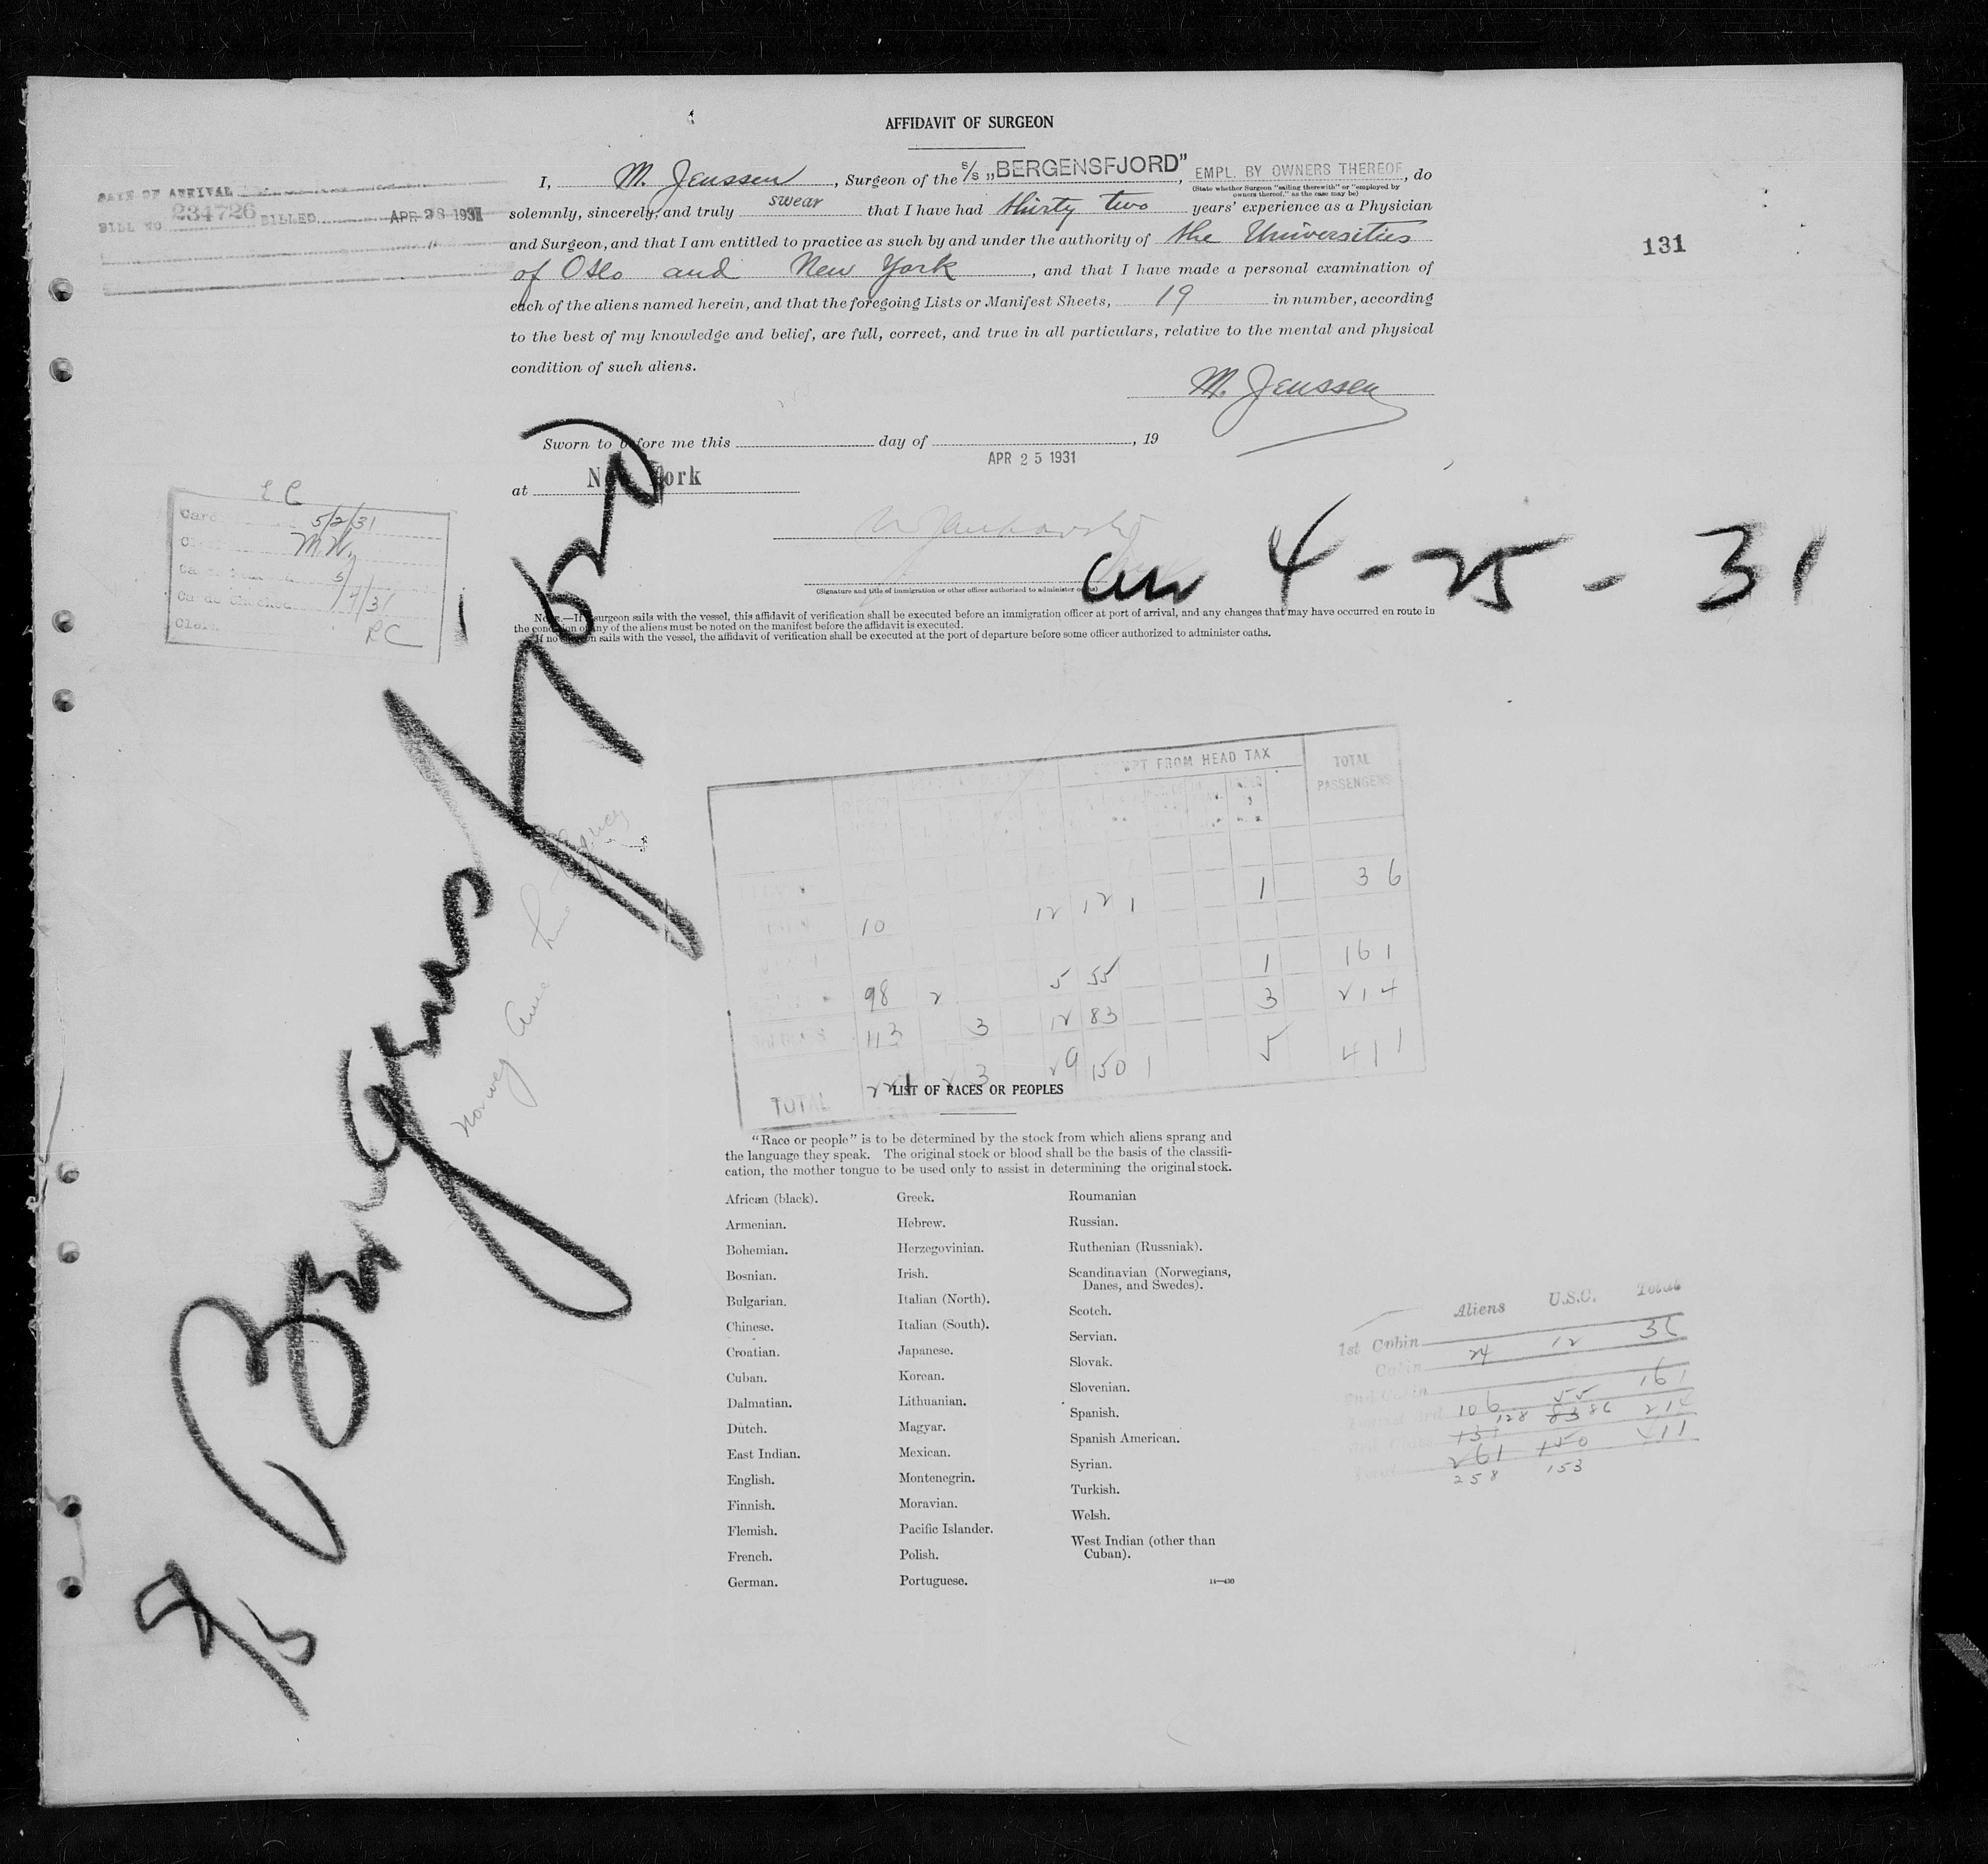 AFFIDAVIT OF SURGEON
I, M. Jenssen, Surgeon of the s/s „BERGENSFJORD", EMPL. BY OWNERS THEREOF, do
(State whether Surgeon "sailing therewith" or "employed by
owners thereof," as the case may be)
solemnly, sincerely, and truly swear that I have had thirty two years' experience as a Physician
and Surgeon, and that I am entitled to practice as such by and under the authority of the Universities
of Oslo and New York, and that I have made a personal examination of
each of the aliens named herein, and that the foregoing Lists or Manifest Sheets, 19 in number, according
to the best of my knowledge and belief, are full, correct, and true in all particulars, relative to the mental and physical
condition of such aliens.
M. Jenssen
DATE OF ARRIVAL
BILL NO 234726 BILLED APR 28 1931
131
Sworn to before me this day of , 19
APR 25 1931
at New York
(Signature and title of immigration or other officer authorized to administer oaths)
arr 4-25-31
NOTE.—If surgeon sails with the vessel, this affidavit of verification shall be executed before an immigration officer at port of arrival, and any changes that may have occurred en route in
the condition of any of the aliens must be noted on the manifest before the affidavit is executed.
If no surgeon sails with the vessel, the affidavit of verification shall be executed at the port of departure before some officer authorized to administer oaths.
5/2/31
M.W.
5/4/31
RC
S/S Bergensfjord
EXEMPT FROM HEAD TAX
TOTAL
PASSENGERS
10 12 12 1 1 36
98 2 5 55 1 161
113 3 12 83 3 214
TOTAL 221 2 3 29 150 1 5 411
LIST OF RACES OR PEOPLES
"Race or people" is to be determined by the stock from which aliens sprang and
the language they speak. The original stock or blood shall be the basis of the classifi-
cation, the mother tongue to be used only to assist in determining the original stock.
African (black).
Armenian.
Bohemian.
Bosnian.
Bulgarian.
Chinese.
Croatian.
Cuban.
Dalmatian.
Dutch.
East Indian.
English.
Finnish.
Flemish.
French.
German.
Greek.
Hebrew.
Herzegovinian.
Irish.
Italian (North).
Italian (South).
Japanese.
Korean.
Lithuanian.
Magyar.
Mexican.
Montenegrin.
Moravian.
Pacific Islander.
Polish.
Portuguese.
Roumanian
Russian.
Ruthenian (Russniak).
Scandinavian (Norwegians,
Danes, and Swedes).
Scotch.
Servian.
Slovak.
Slovenian.
Spanish.
Spanish American.
Syrian.
Turkish.
Welsh.
West Indian (other than
Cuban).
14—430
Aliens U.S.C. Total
1st Cabin
Cabin 24 12 36
2nd Cabin
106 55 161
131 128 83 86 214
261 150 411
258 153